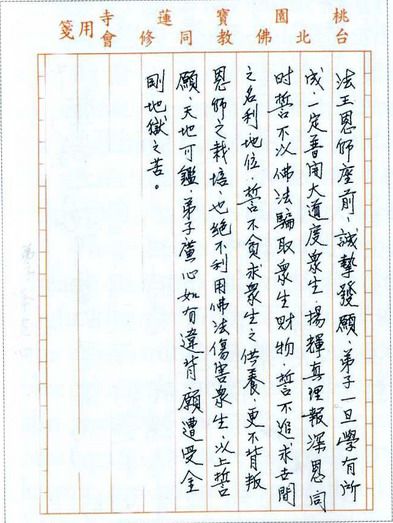 桃園寶蓮寺
台北佛教同修會
用箋
法王恩師座前，誠摯發願，弟子一旦學有所
成，一定普開大道度眾生，揚輝真理報深恩，同
時誓不以佛法騙取眾生財物，誓不追求世間
之名利地位，誓不貪求眾生之供養，更不背叛
恩師之栽培，也絕不利用佛法傷害眾生，以上誓
願，天地可鑑，弟子心如有違背，願遭受金
剛地獄之苦。